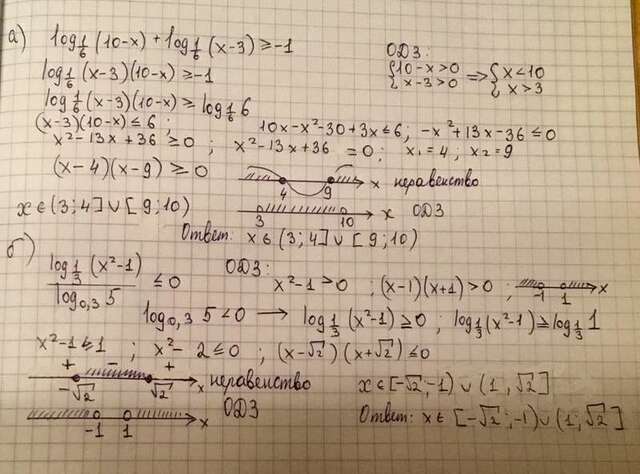 а) log_{1/6} (10-x) + log_{1/6} (x-3) ≥ -1
ОДЗ:
{10-x>0 {x-3>0 => {x<10 {x>3
log_{1/6} (x-3)(10-x) ≥ -1
log_{1/6} (x-3)(10-x) ≥ log_{1/6} 6
(x-3)(10-x) ≤ 6 ; 10x-x²-30+3x ≤ 6; -x²+13x-36 ≤ 0
x²-13x+36 ≥ 0 ; x²-13x+36 = 0; x₁=4; x₂=9
(x-4)(x-9) ≥ 0
4 9 x неравенство
x ∈ (3;4] ∪ [9;10)
3 10 x ОДЗ
Ответ: x ∈ (3;4] ∪ [9;10)
б) log_{1/3} (x²-1) / log_{0,3} 5 ≤ 0
ОДЗ:
x²-1>0 ; (x-1)(x+1)>0 ; -1 1 x
log_{0,3} 5 < 0 → log_{1/3} (x²-1) ≥ 0 ; log_{1/3} (x²-1) ≥ log_{1/3} 1
x²-1 ≤ 1 ; x²-2 ≤ 0 ; (x-√2)(x+√2) ≤ 0
+ - +
-√2 √2 x неравенство
x ∈ [-√2;-1) ∪ (1,√2]
-1 1 x ОДЗ
Ответ: x ∈ [-√2;-1) ∪ (1;√2]